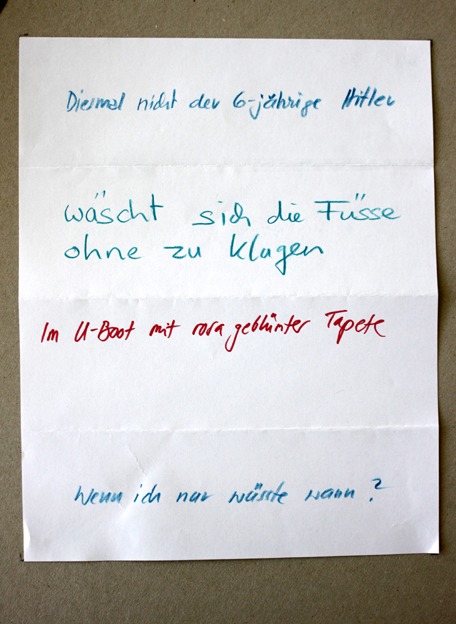 Diesmal nicht der 6-jährige Hitler
wäscht sich die Füsse
ohne zu klagen
Im U-Boot mit rosa geblümter Tapete
Wenn ich nur wüsste wann?